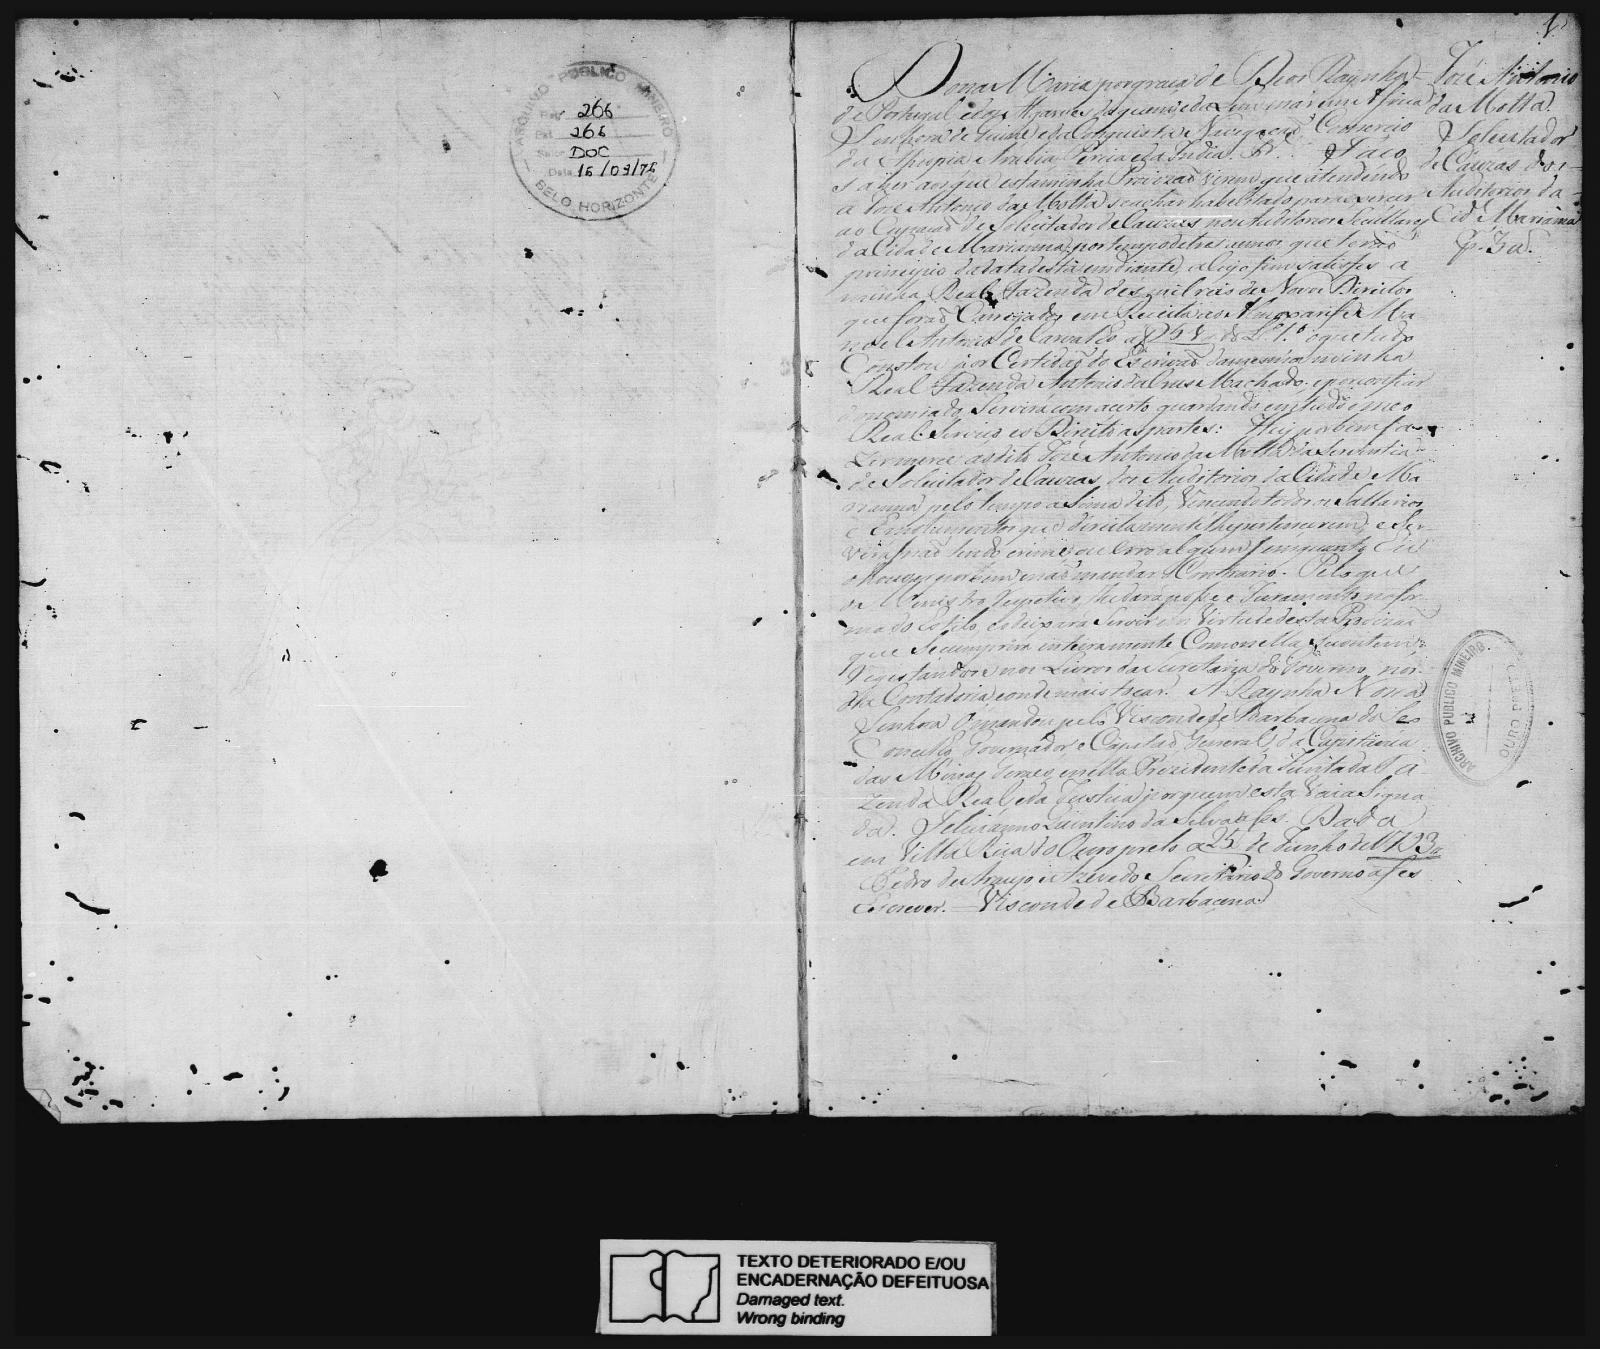 ARQUIVO PUBLICO MINEIRO
266
265
DOC
Data 15/09/75
BELO HORIZONTE
1
Dona Maria por graça de Deos Raynha
de Portugal e dos Algarves daquem e dalem mar em Africa
Senhora de Guiné e da Conquista Navegaçaõ Comercio
da Ethiopia Arabia Percia e da India &. Faço
saber aos que esta minha Provizaõ virem que atendendo
a Jozé Antonio da Motta se achar habelitado para exercer
a Ocupaçaõ de Solicitador de Cauzas nos Auditorios Secullares
da Cidade Marianna, por tempo de tres annos que teraõ
principio da data desta em diante, a cujo fim satisfes a
minha Real Fazenda des mil reis de Novos Direitos
que foraõ Carregados em Receita ao Almoxarife Ma
noel Antonio de Carvalho a f 51 do L.º 1.º o que tudo
Constou por Certidaõ do Escrivaõ da mesma minha
Real Fazenda Antonio da Crus Machado; e por confiar
do nomiado Servirá com acerto guardando em tudo o meo
Real Serviço e o Direito as partes: Hey por bem fa
zer merce ao dito Jozé Antonio da Motta da Serventia
de Solicitador de Cauzas dos Auditorios da Cidade Ma
rianna pelo tempo asima dito, Vencendo todos os Sallarios
e Emolumentos que direitamente lhe pertencerem, e Ser
virá naõ tendo crime ou erro algum, emquanto Eu
o houver por bem e naõ mandar o Contrario. Pelo que
o Menistro respetivo lhe dará posse e Juramento na for
ma do Estilo e o deixará Servir em Virtude desta Provizaõ
que se cumprirá inteiramente Como nella se contem
Registandose nos Livros da Secretaria do Governo, nos
da Contadoria e onde mais tocar. A Raynha Nossa
Senhora o mandou pelo Visconde de Barbacena do Seo
Concelho, Governador e Capitaõ General da Capitania
das Minas Geraes e nella Prezidente da Junta da Fa
zenda Real e da Justiça por quem esta Vai aSigna
da. Felicissimo Quintino da Silva a fes. Dada
em Villa Rica do Ouro preto a 25 de Junho de 1793
Pedro de Araujo e Azevedo Secretario do Governo a fes
escrever. — Visconde de Barbacena
Jozé Antonio
da Motta
Solicitador
de Cauzas dos
Auditorios da
Cid.e Marianna
ARCHIVO PUBLICO MINEIRO
OURO PRETO
TEXTO DETERIORADO E/OU
ENCADERNAÇÃO DEFEITUOSA
Damaged text.
Wrong binding